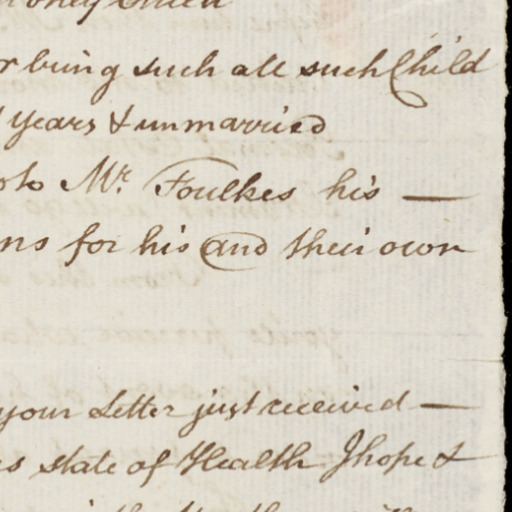 r being such all such Child
years & unmarried
to Mr. Foulkes his —
ns for his and their own
your Letter just received —
s state of Health I hope &